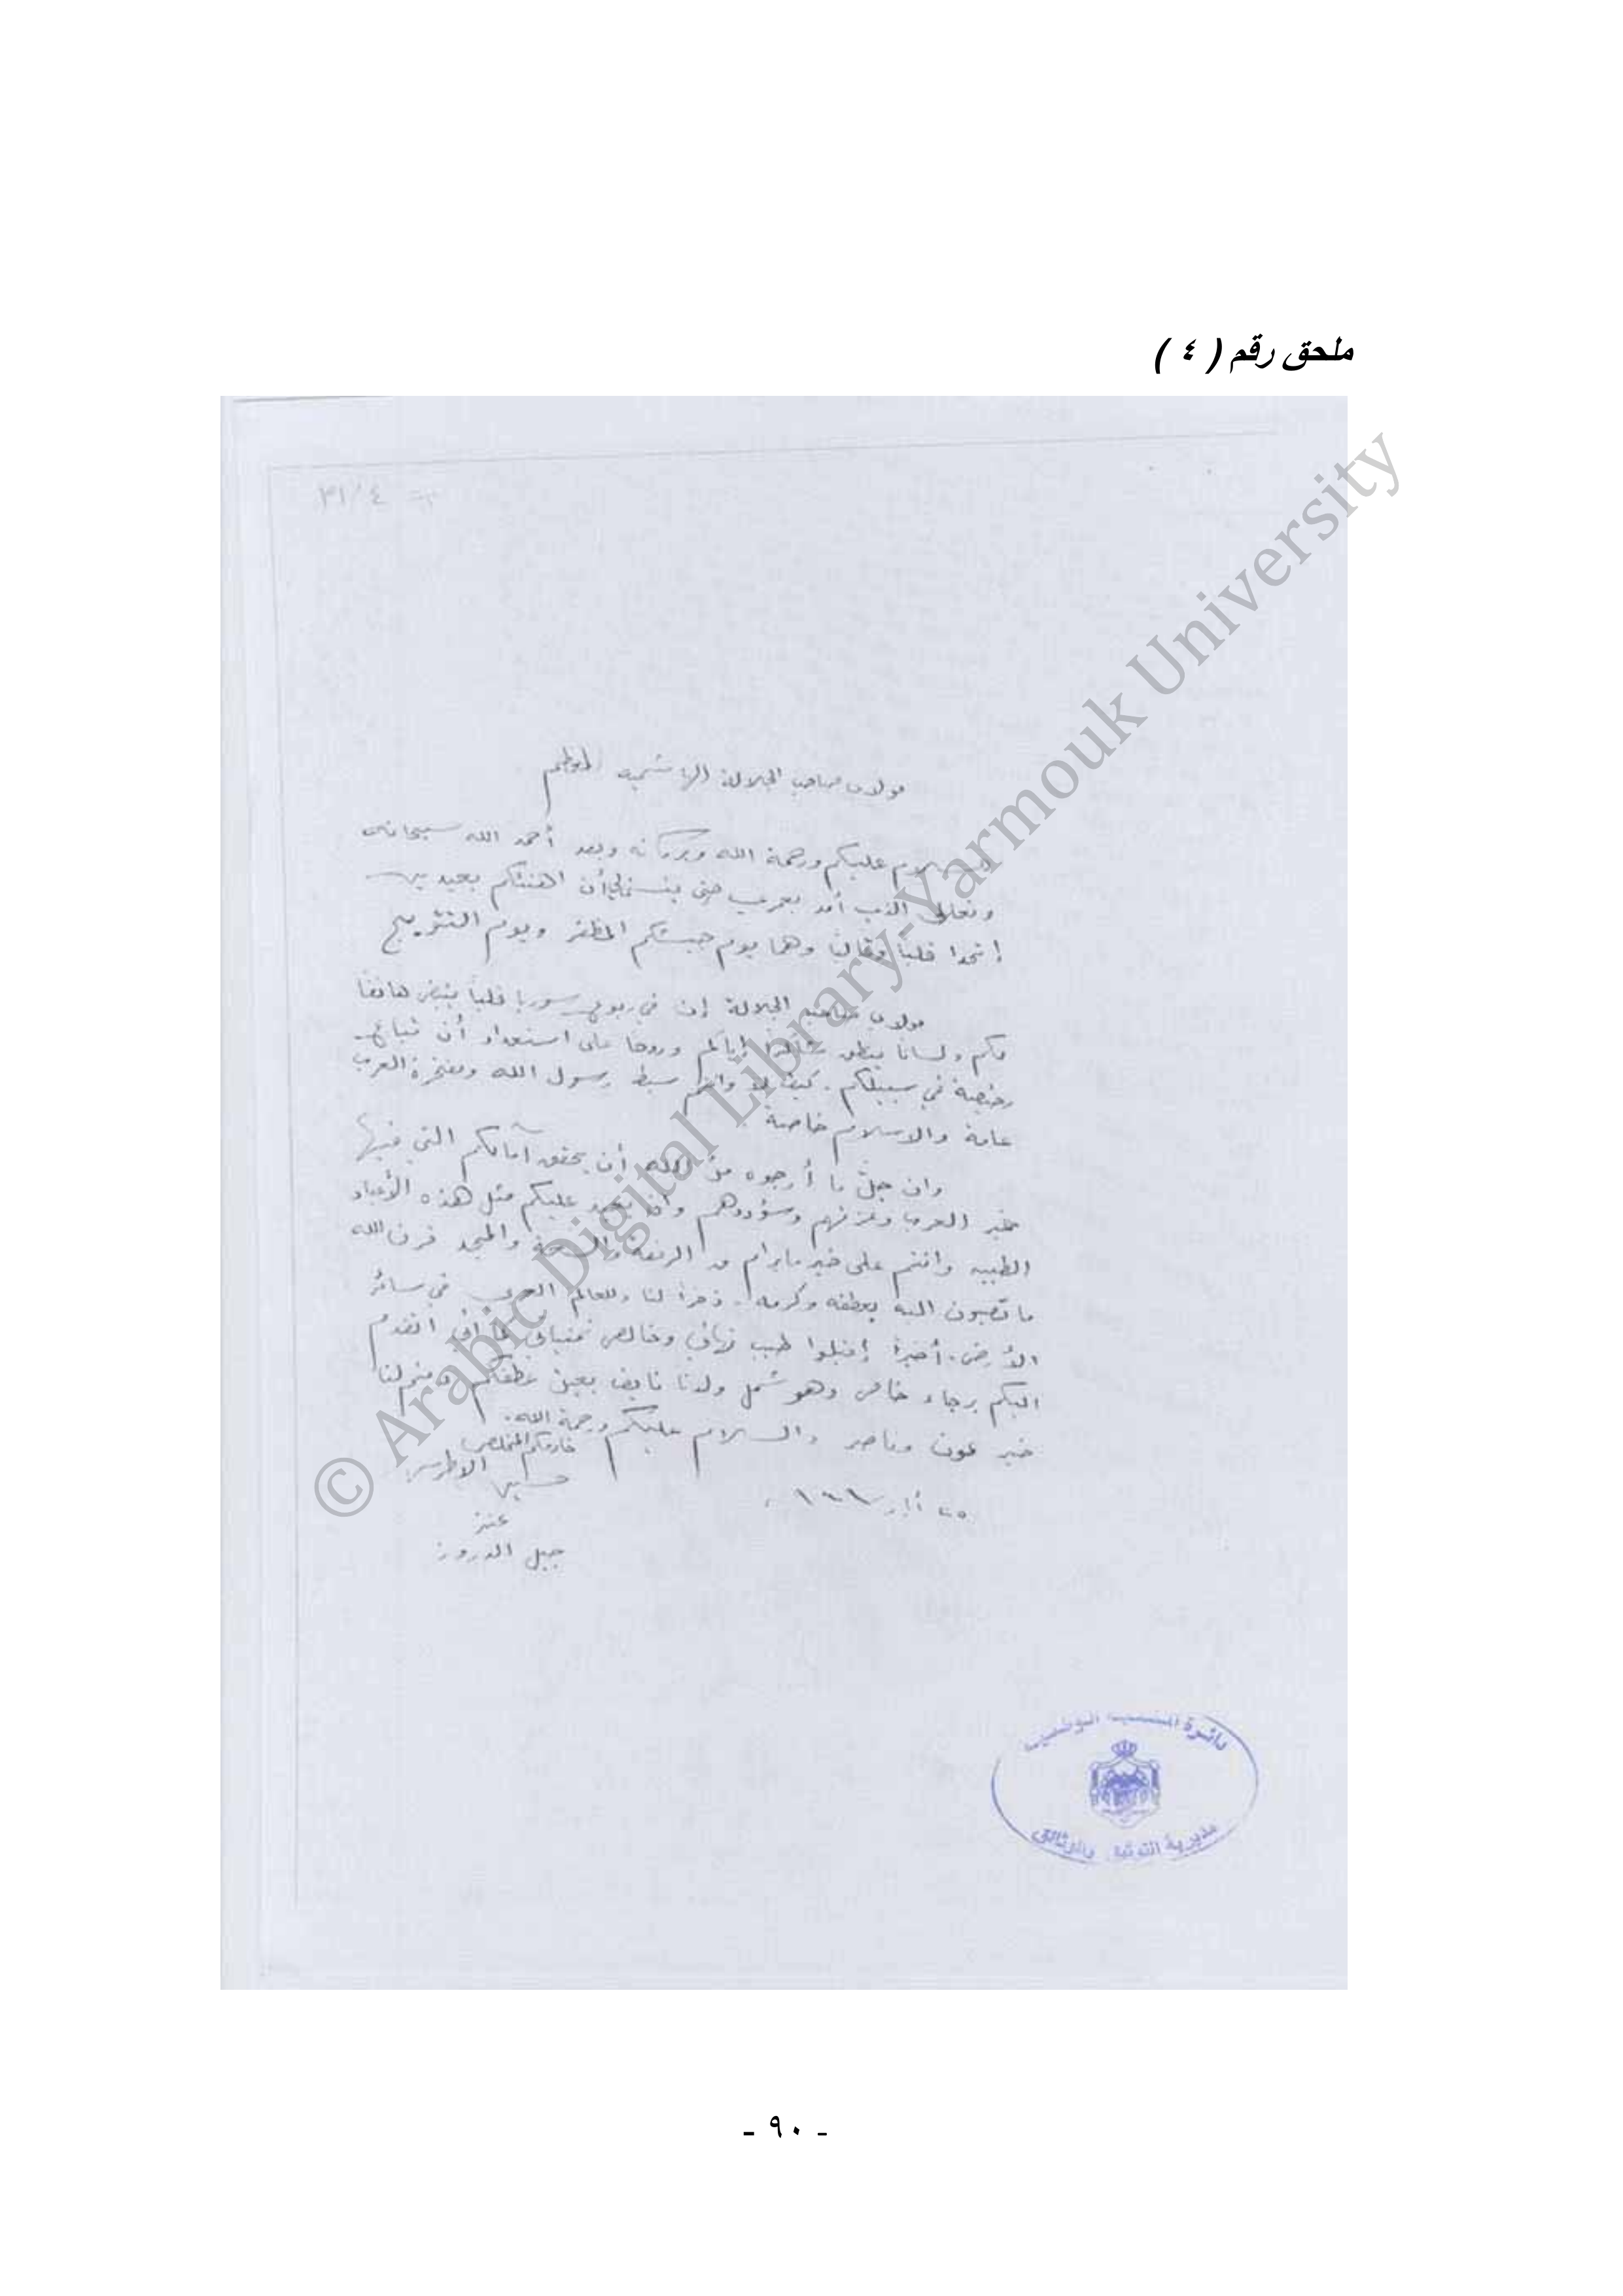 ملحق رقم ( ٤ )
٣١/٤
مولاي صاحب الجلالة الهاشمية المعظم
السلام عليكم ورحمة الله وبركاته وبعد أحمد الله سبحانه
وتعالى الذي أمد بعمري حتى يتسنى لي أن اهنئكم بعيدين
إتحدا قلباً وقالباً وهما يوم جيشكم المظفر ويوم التتويج
مولاي صاحب الجلالة إن في ربوع سوريا قلباً ينبض هاتفاً
لكم ولساناً ينطق شاكراً إياكم وروحاً على استعداد أن تباع
رخيصة في سبيلكم. كيف لا وانتم سبط رسول الله ومفخرة العرب
عامة والاسلام خاصة.
وان جلّ ما أرجوه من الله أن يحقق آمالكم التي فيها
خير العرب وعزتهم وسؤددهم وان يعيد عليكم مثل هذه الأعياد
الطيبه وانتم على خير ما يرام من الرفعة والمجد
ما تصبون اليه بعطفه وكرمه. ذخراً لنا وللعالم العربي في سائر
الأرض. أخيراً إقبلوا طيب تهاني وخالص تمنياتي كما أني اتقدم
اليكم برجاء خاص وهو شمل ولدنا نايف بعين عطفكم ودمتم لنا
خير عون وناصر والسلام عليكم ورحمة الله.
خادمكم المخلص
الاطرش
عنز
جبل الدروز
أيار
دائرة المكتبة الوطنية
مديرية التوثيق والوثائق
© Arabic Digital Library-Yarmouk University
- ٩٠ -